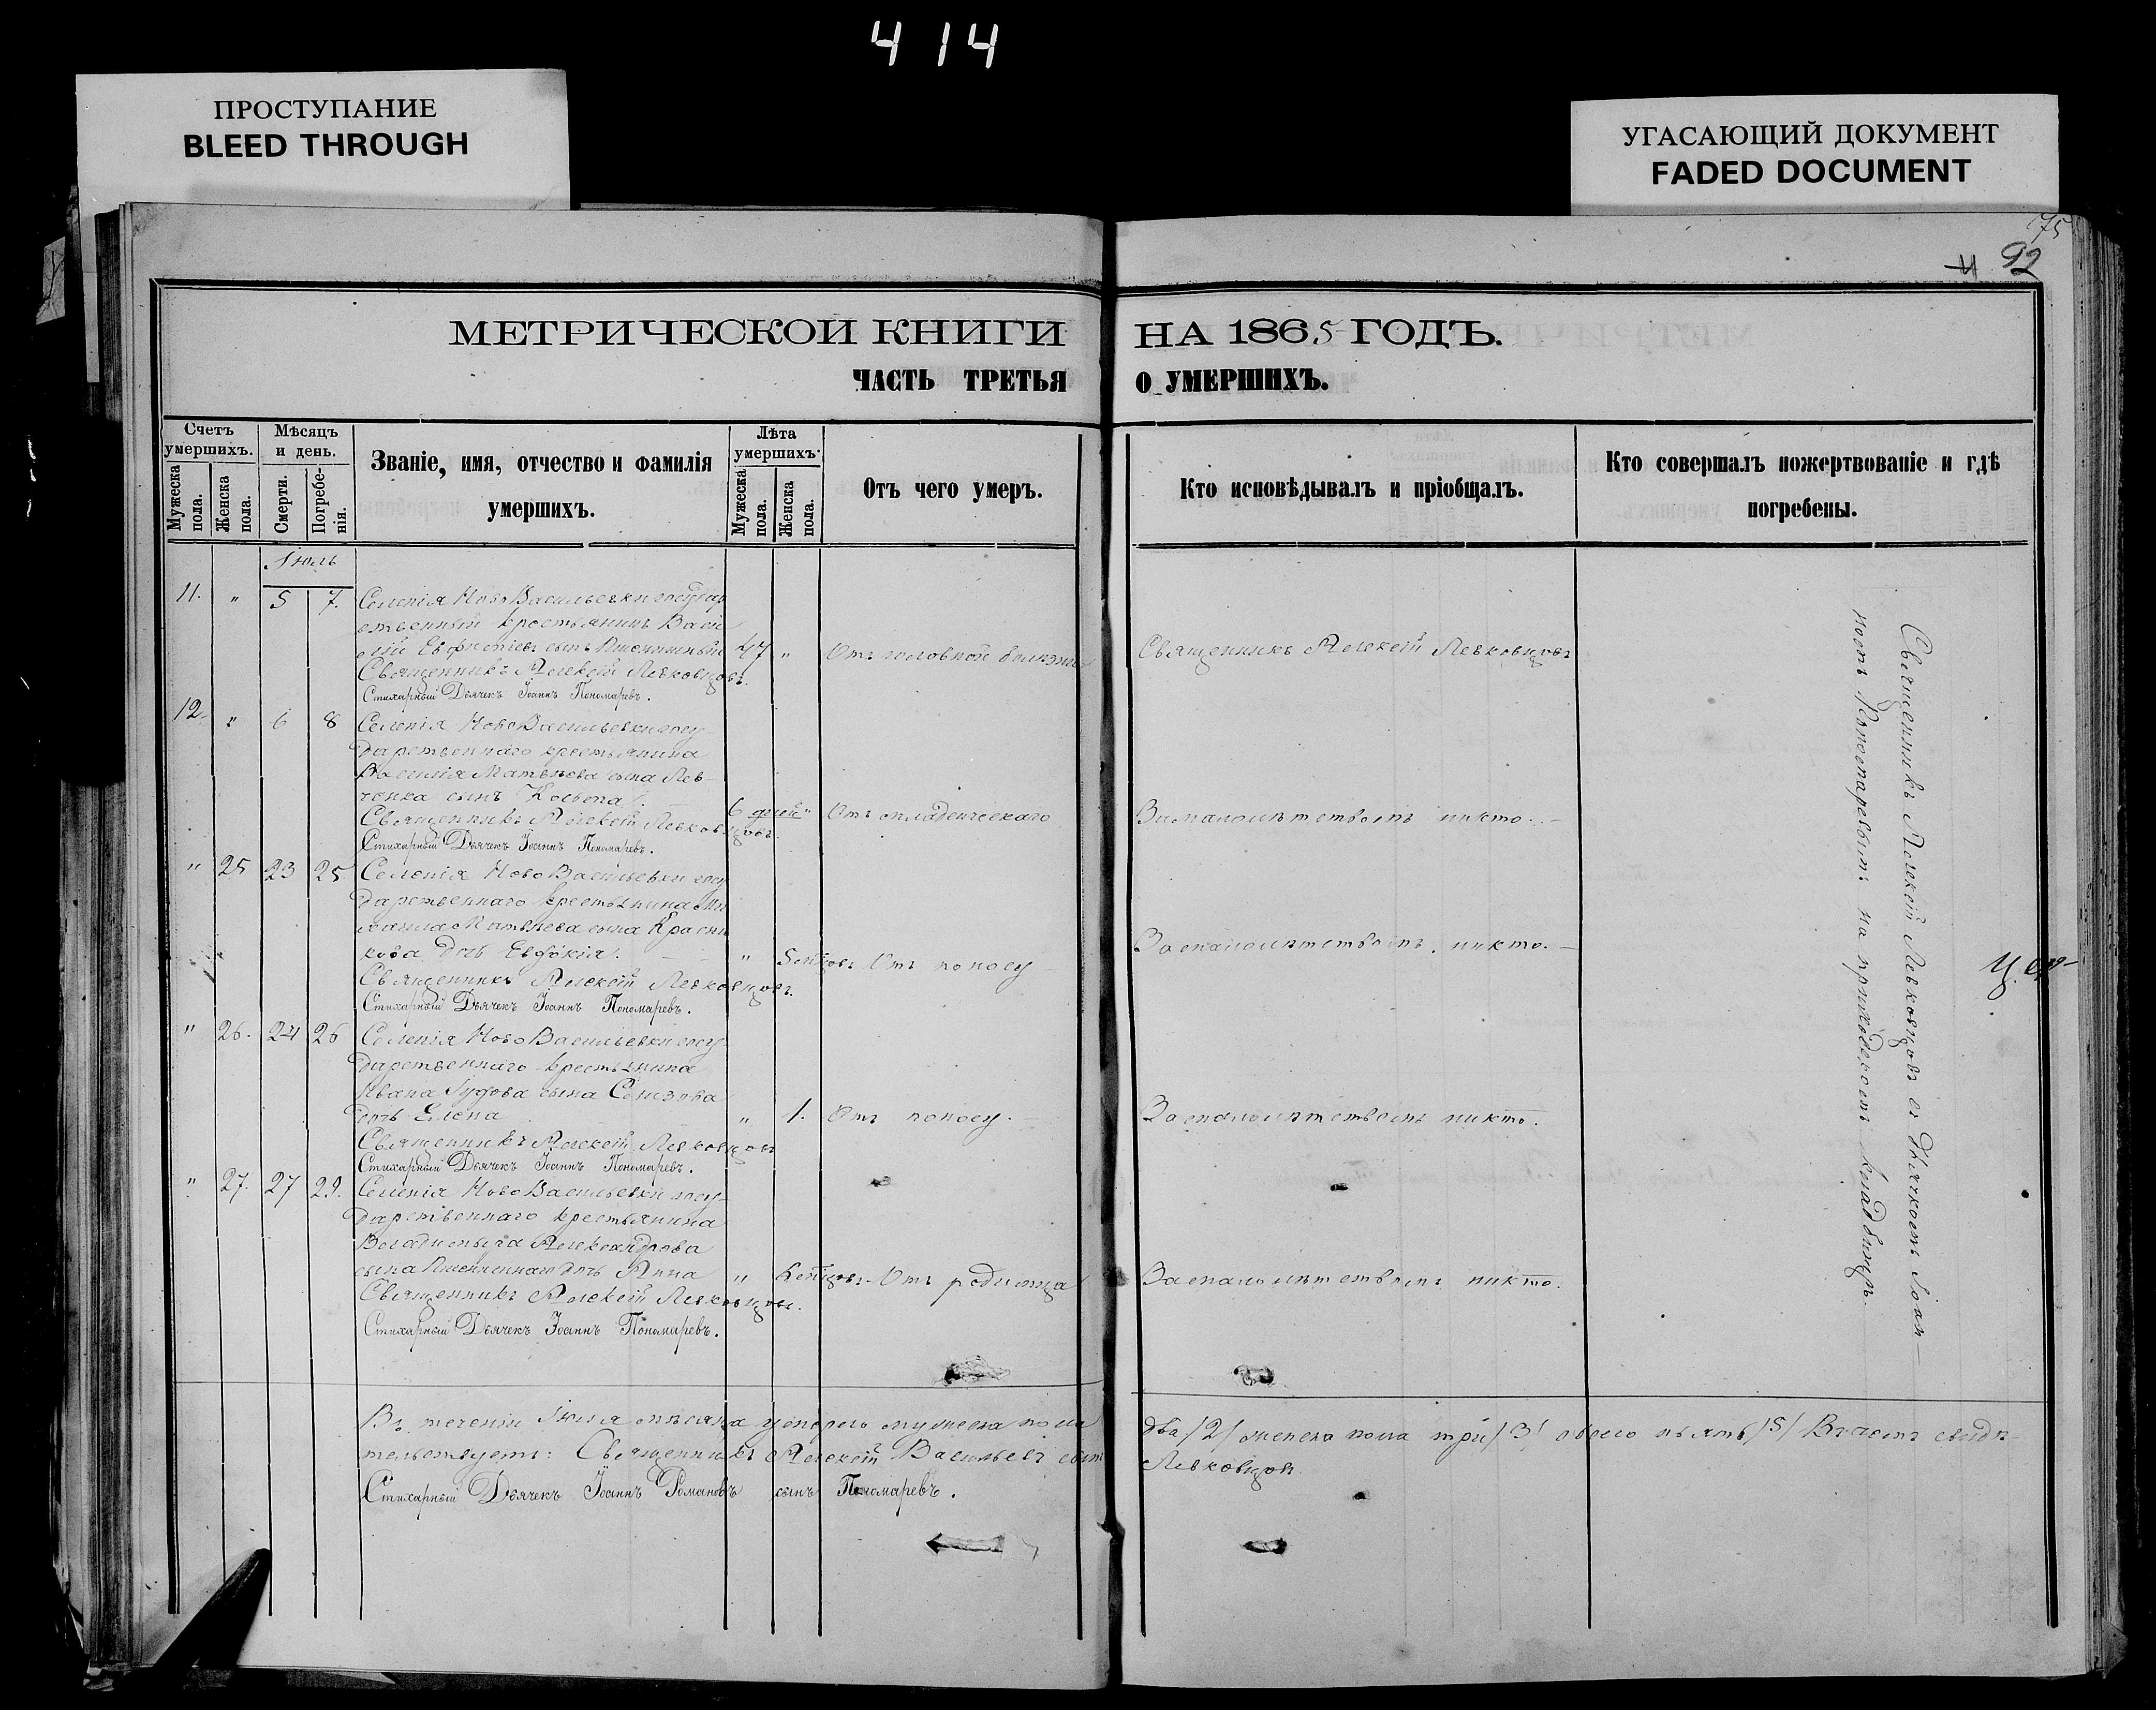 414
ПРОСТУПАНИЕ
BLEED THROUGH
УГАСАЮЩИЙ ДОКУМЕНТ
FADED DOCUMENT
75
92
МЕТРИЧЕСКОИ КНИГИ НА 1865 ГОДЪ.
ЧАСТЬ ТРЕТЬЯ О УМЕРШИХЪ.
Счетъ умершихъ.
Мужеска пола.
Женска пола.
Мѣсяцъ и день.
Смерти.
Погребенія.
Званіе, имя, отчество и фамилія
умершихъ.
Лѣта умершихъ.
Мужеска пола.
Женска пола.
Отъ чего умеръ.
Кто исповѣдывалъ и пріобщалъ.
Кто совершалъ пожертвованіе и гдѣ
погребены.
Іюль
11. " 5 7. Селенія НовоВасильевки государ
ственный крестьянинъ Васи
лій сынъ 47 " Отъ головной болезни Священникъ Алексѣй Левковцовъ
Священникъ Алексѣй Левковцовъ.
Стихарный Дьячекъ Іоаннъ Пономаревъ.
12. " 6 8 Селенія НовоВасильевки госу-
дарственнаго крестьянина
Василія Матвѣева сына Лев-
ченка сынъ 6 дней " Отъ младенческаго За малолѣтствомъ никто.
Священникъ Алексѣй Левковцовъ.
Стихарный Дьячекъ Іоаннъ Пономаревъ.
" 25 23 25 Селенія НовоВасильевки госу
дарственнаго крестьянина Ми
хаила Матвѣева сына Красни
кова дочь Евдокія. " 5 Отъ поносу За малолѣтствомъ никто.
Священникъ Алексѣй Левковцовъ.
Стихарный Дьячекъ Іоаннъ Пономаревъ.
" 26. 24 26 Селенія НовоВасильевки госу
дарственнаго крестьянина
Ивана сына
дочь Елена " 1. Отъ поносу. За малолѣтствомъ никто.
Священникъ Алексѣй Левковцовъ
Стихарный Дьячекъ Іоаннъ Пономаревъ.
" 27. 27 29. Селенія НовоВасильевки госу-
дарственнаго крестьянина
Владиміра Александрова
сына дочь Анна " Отъ родимца За малолѣтствомъ никто.
Священникъ Алексѣй Левковцовъ.
Стихарный Дьячекъ Іоаннъ Пономаревъ.
Священникъ Алексѣй Левковцовъ съ Дьячкомъ Іоан-
номъ Пономаревымъ на приходскомъ кладбищѣ.
Цер-
Въ теченіи Іюля мѣсяца умерло мужеска пола два /2/ женска пола три /3/ обоего пять /5/ Въ чемъ свидѣ-
тельствуетъ: Священникъ Алексѣй Васильевъ сынъ Левковцовъ.
Стихарный Дьячекъ Іоаннъ Романовъ сынъ Пономаревъ.